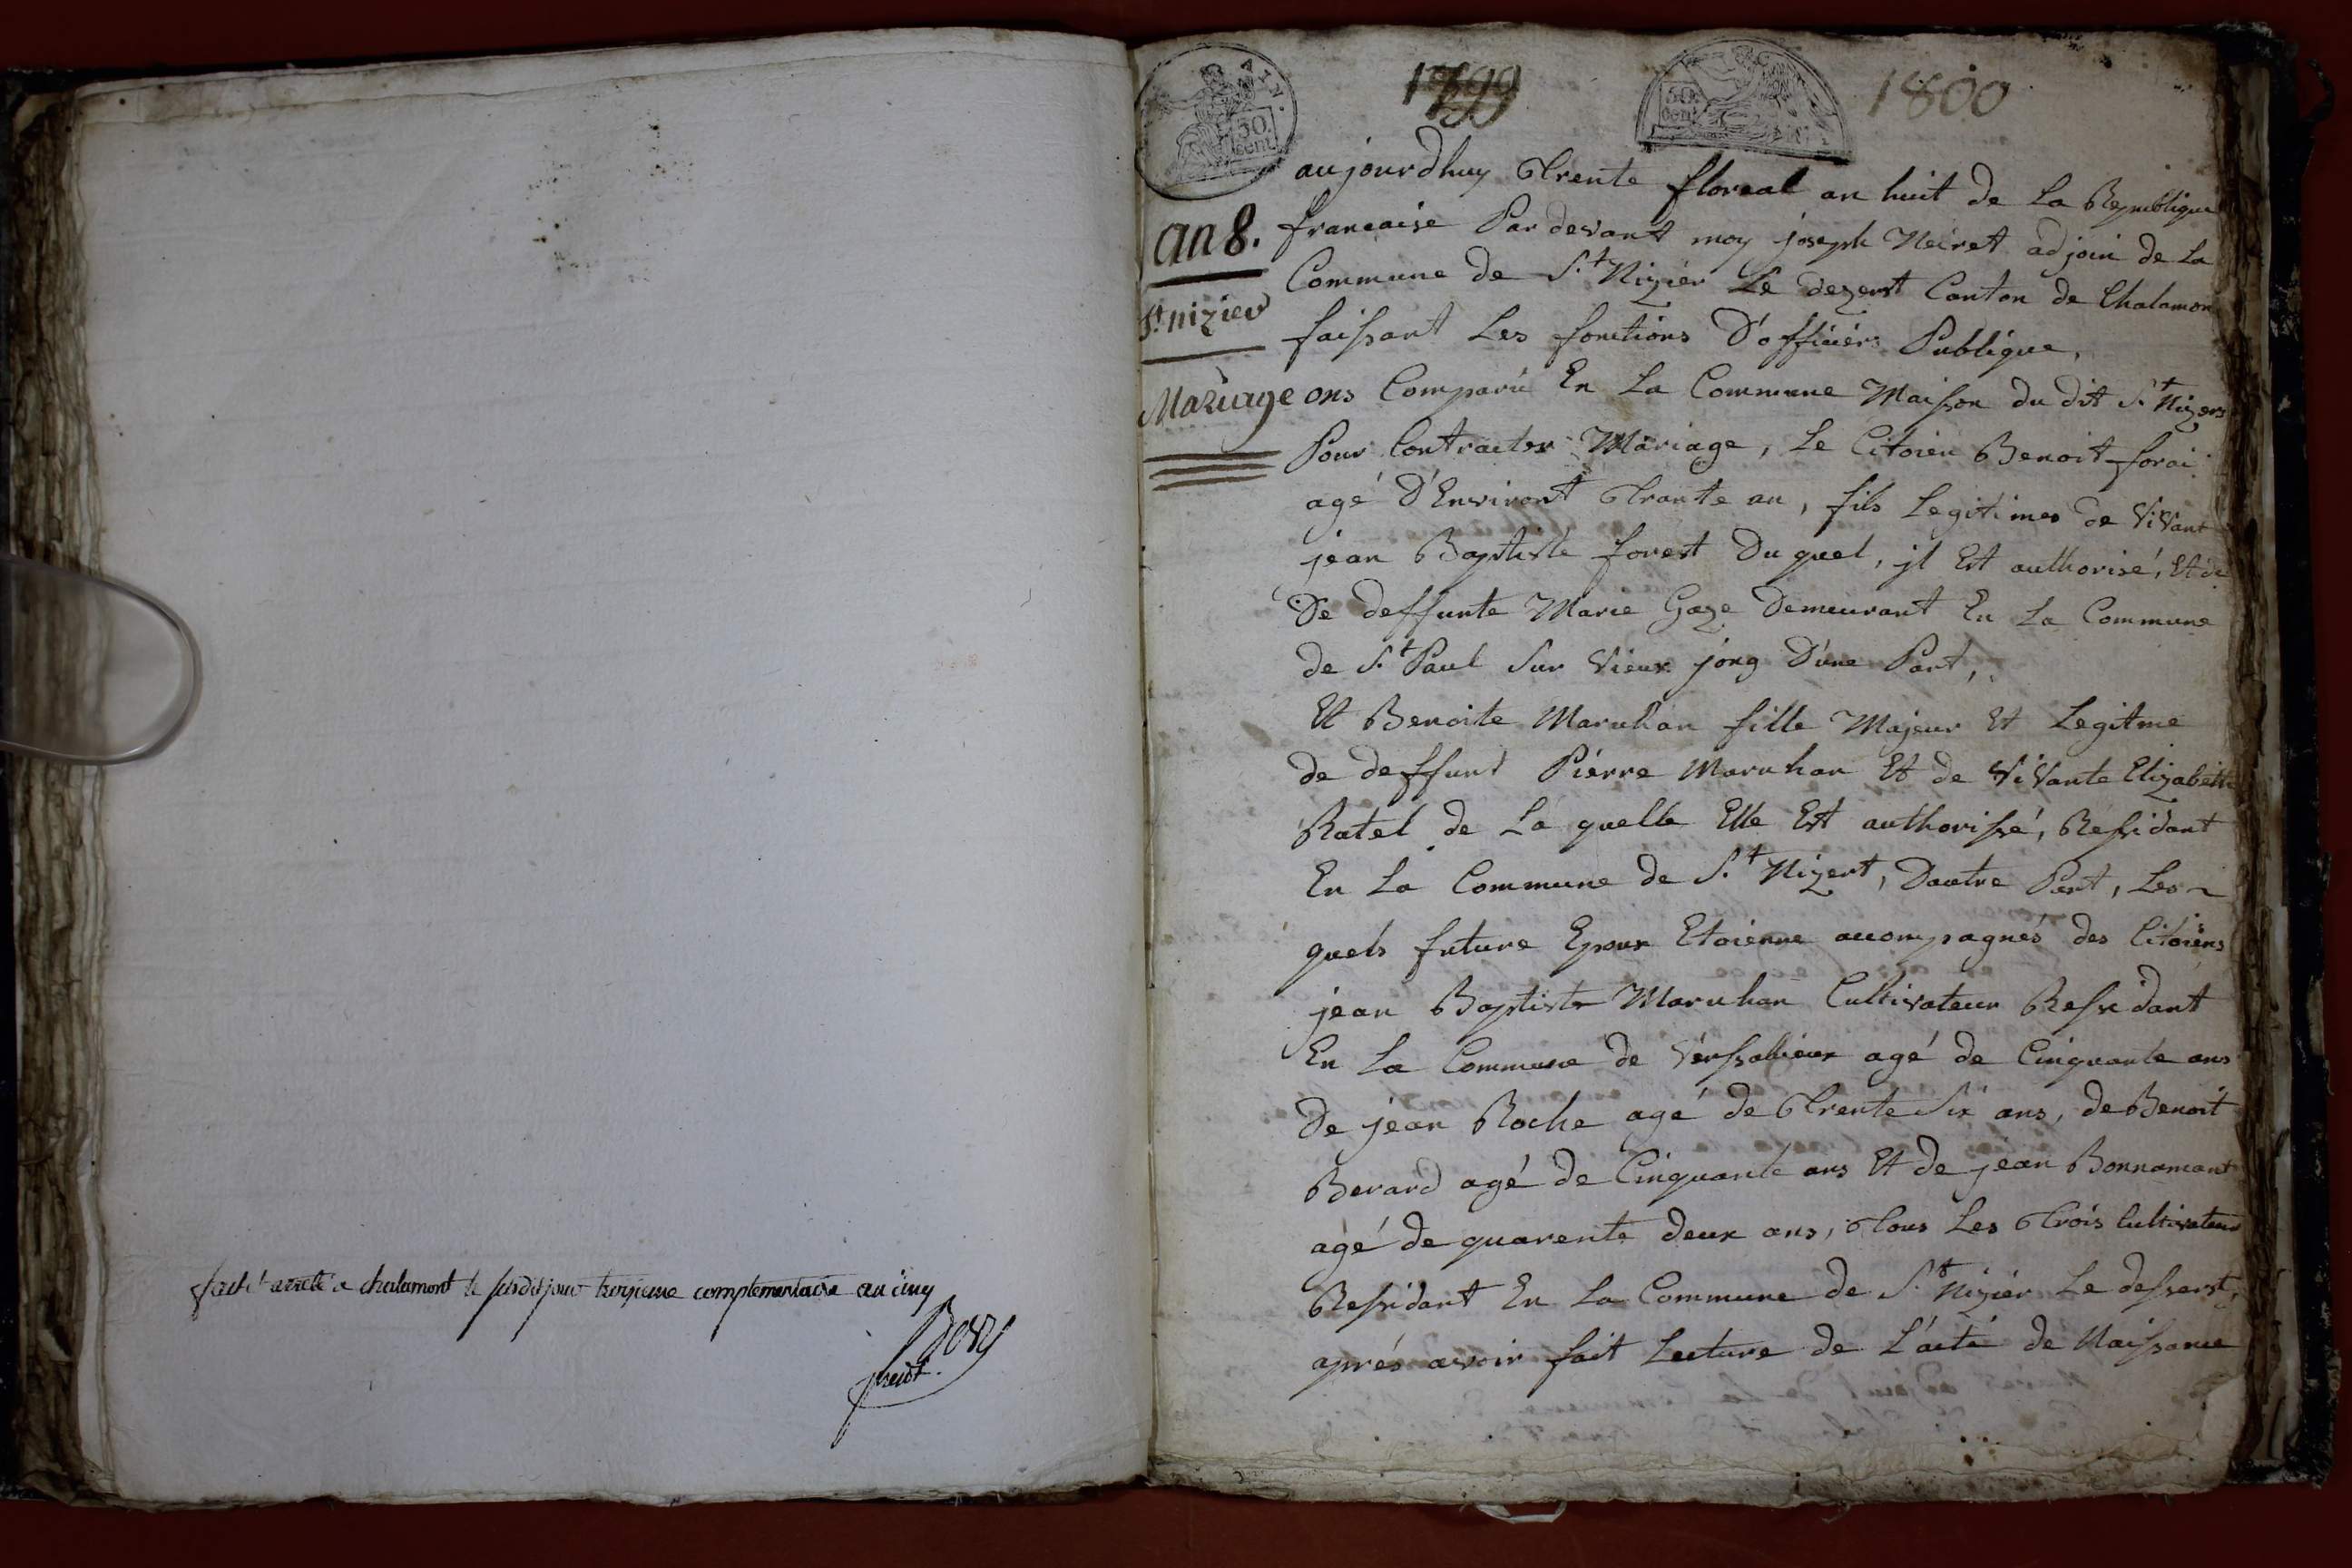 fait et arreté a chalamont le susdit jour troisieme complementaire an cinq
Bory
presidt.
1799
1800
50.
cent.
50.
cent.
an 8.
St. nizier
Mariage
aujourdhuy Trente floreal an huit de La Republique
francaise Par devant moy joseph Neiret adjoin de La
Commune de S.t Nizier Le dezert Canton de Chalamon
faissant Les fonctions D'officiérs Publique,
ons Comparu En La Commune Maisson du dit S.t Nizers
Pour Contracter Mariage, Le Citoien Benoit forai
agé D'Environt Trante an, fils Legitimes de ViVant
jean Baptiste forest Du quel, il Est authorisé, Et de
De deffunte Marie Gaze Demeurant En La Commune
de S.t Paul Sur Vieux jong D'une Part,
Et Benoite Maruhan fille Majeur Et Legitme
de deffunt Piérre Maruhan Et de ViVante Elizabeth
Ratel de La quelle Elle Est authorissé, Ressidant
En La Commune de S.t Nizert, Dautre Part, Les
quels future Epoux Etoienne accompagnés des Citoiens
jean Baptiste Maruhan Cultivateur Ressidant
En La Commune de Vérssalieux agé de Cinquante ans
De jean Roche agé de Trente Six ans, de Benoit
Berard agé de Cinquante ans Et de jean Bonnamant
agé de quarente deux ans, Tous Les Trois Cultivateur
Ressidant En La Commune de S.t Nizier Le dessert,
aprés avoir fait Lecture de L'acté de Naissance